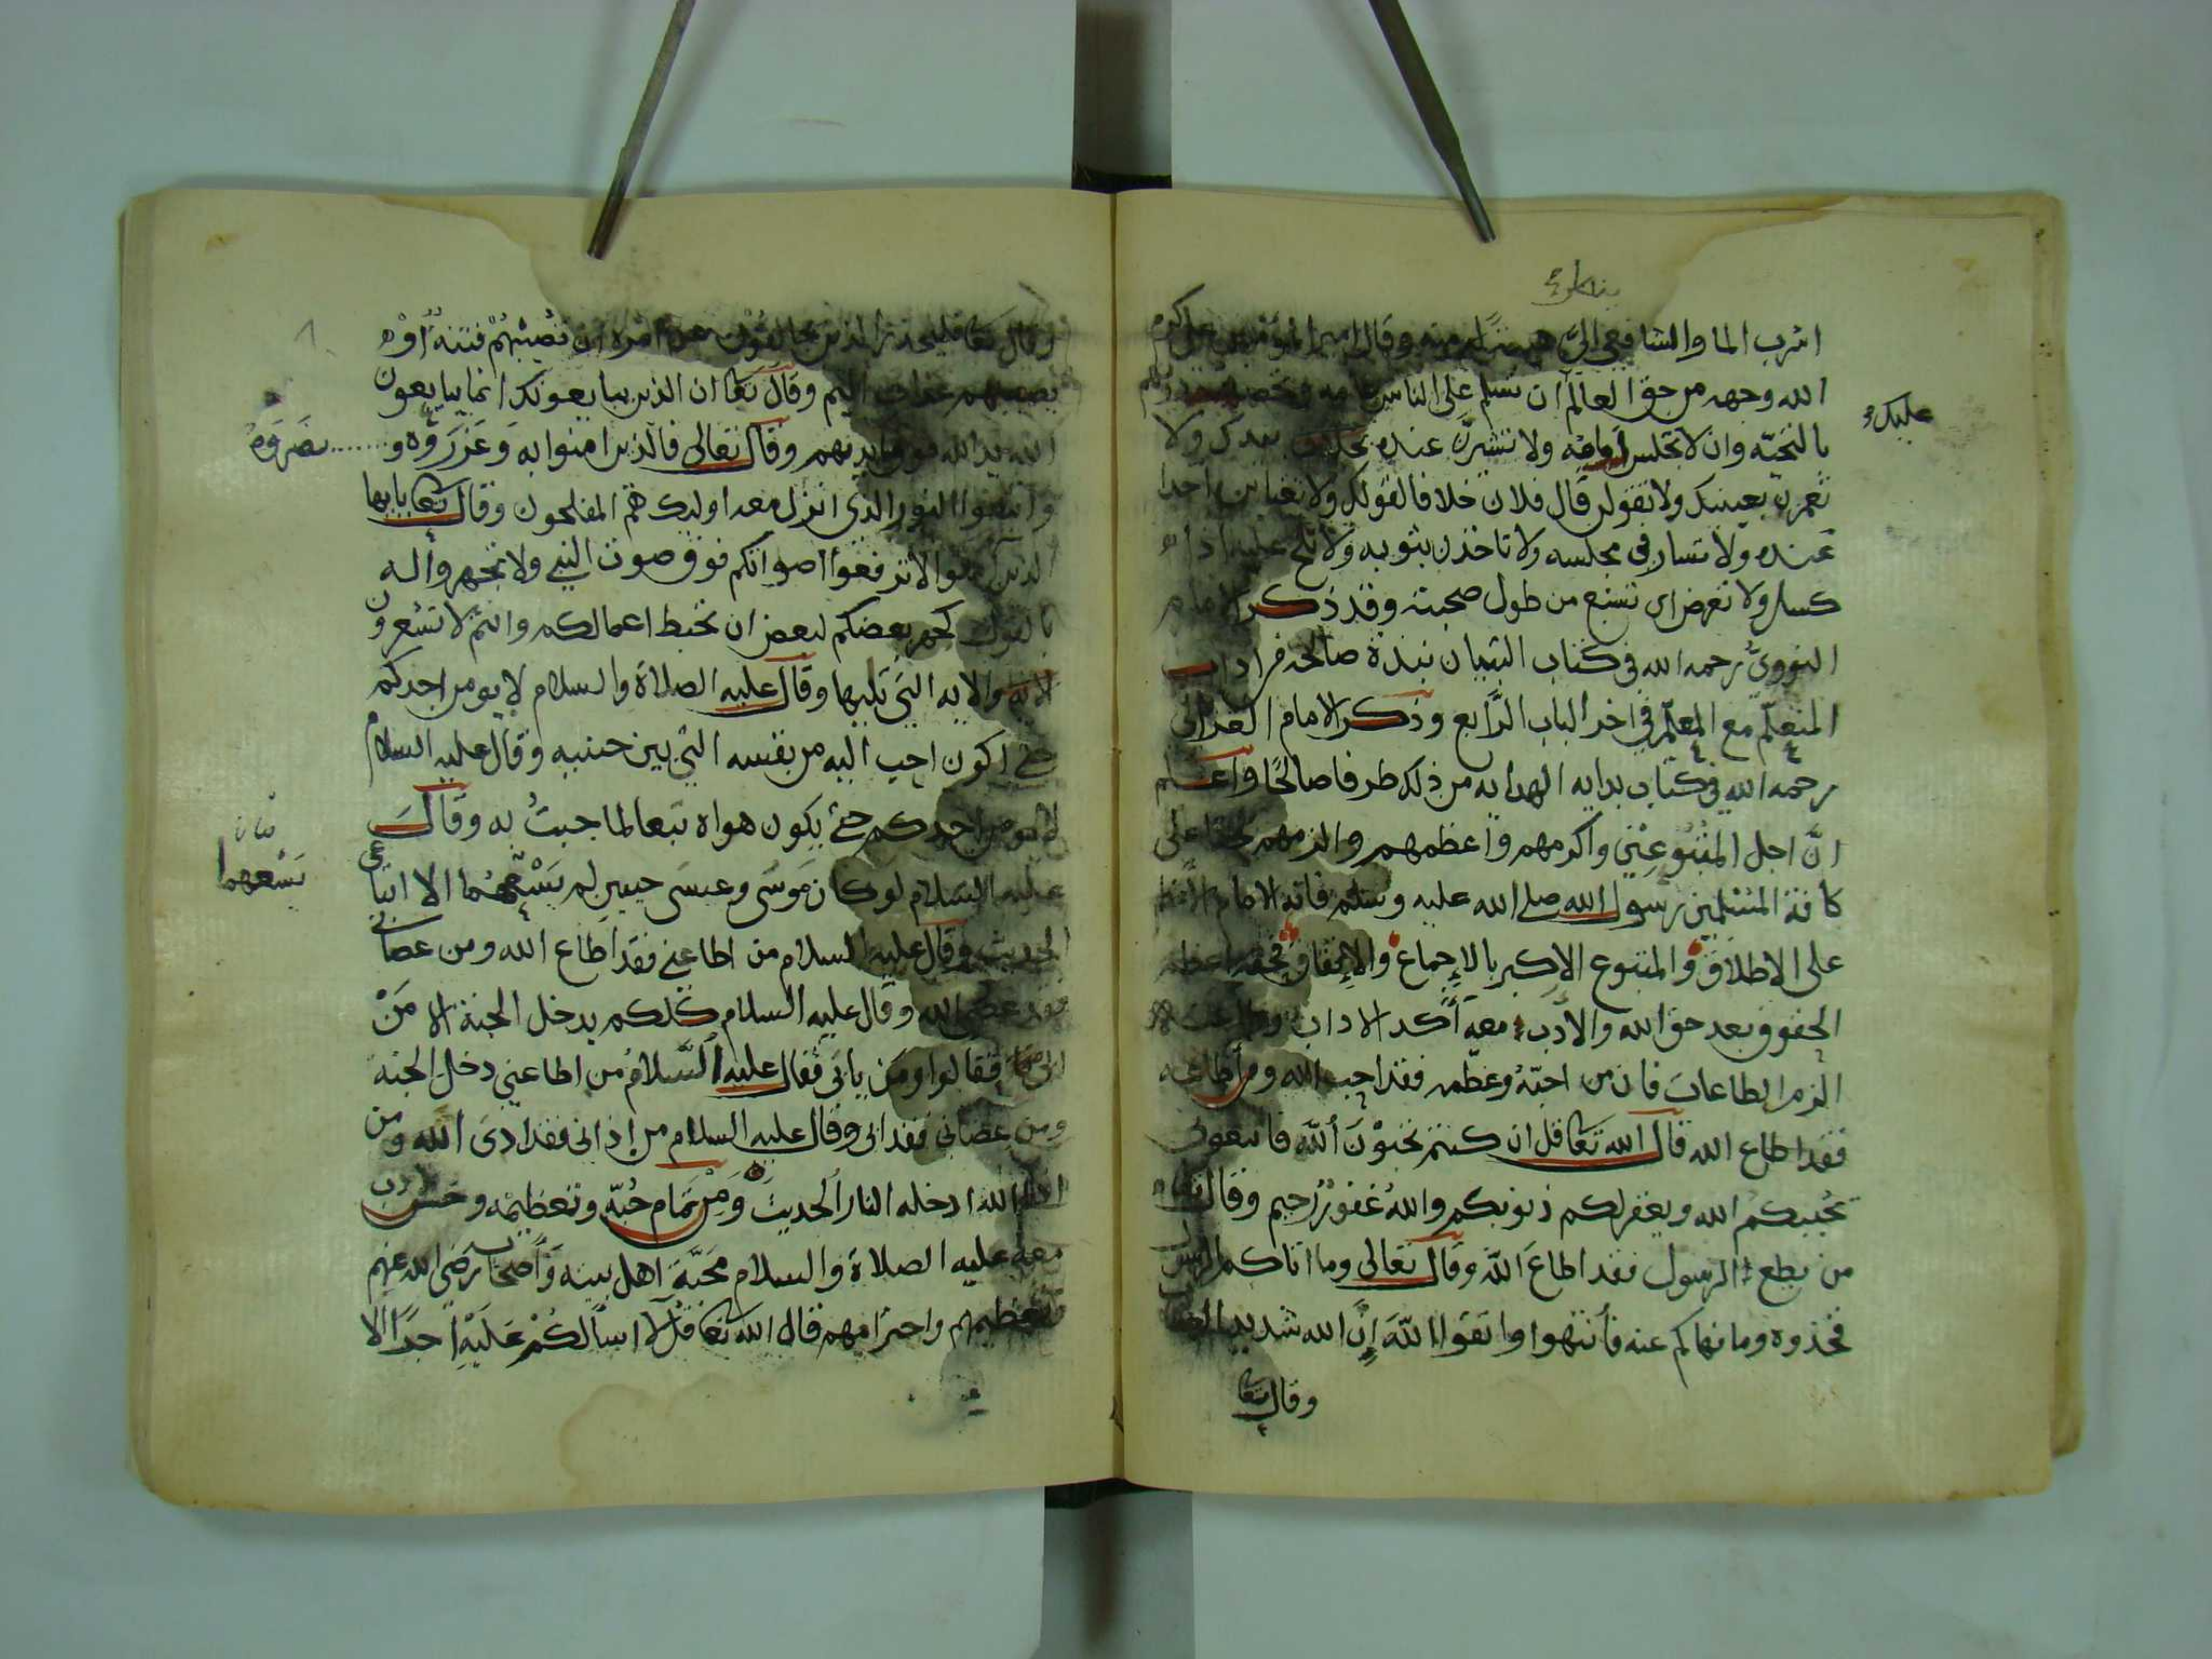 ينظر
اشرب الما والشافعي اليّ هيبةً له منه وقال امير المؤمنين علي كرم
الله وجهه من حق العالم ان تسلم على الناس عامه وتخصه دونهم
عليك
بالتحيّه وان لا تجلس أمامه ولا تشيرنّ عنده بيدك ولا
تغمزن بعينيك ولا تقولن قال فلان خلافا لقولك ولا تغتابن احدا
عنده ولا تسار في مجلسه ولا تاخذن بثوبه ولا تلح عليه اذا
كسل ولا تعرض اى تشبع من طول صحبته وقد ذكر الامام
النووىُّ رحمه الله في كتاب التبيان نبذة صالحه من اداب
المتعلّم مع المعلّم في اخر الباب الرّابع وذكر الامام الغزالى
رحمه الله في كتاب بدايه الهدايه من ذلك طرفا صالحًا واعلم
انّ اجل المتبُوعِيْن واكرمهم واعظمهم والزمهم حقا على
كافة المسْلمين رسول الله صلى الله عليه وسلم فانه الامام
على الاطلاق والمتبوع الاكبر بالاِجماع والاِتفاق فحقه اعظم
الحقوق بعد حق الله والادَب معه أَكد الاداب وطاعته
الزم الطاعات فان من احبّهُ وعظّمه فقد احب الله ومن أطاعه
فقد اطاع الله قال الله تعا قل ان كنتم تحبوْنَ اللّهَ فاتبعونى
يُحببكم الله ويغفر لكم ذنوبكم واللهُ غفورٌ رحيم وقال تعا
من يطع الرسول فقد اطاعَ اللّه وقال تعالى وما اتاكم الرسول
فخذوه وما نهاكم عنه فأنتهوا واتقوا اللّهَ إِنَّ الله شديد العقاب
وقال تعا
وقال تعا فليحذر الذين يخالفُوْن عن امْره ان تُصِيْبَهُمْ فتنةٌ أوْ
يصيبهم عذاب اليم وقال تعا ان الذين يبايعونك انما يبايعون
الله يد الله فوق ايديهم وقال تعالى فالذين امنوا به وَعَزرَوُه و
نصَروهُ
واتبعوا النور الذى انزل معه اوليك هم المفلحون وقال تعا يايها
الذين امنوا لا ترفعوا اصواتكم فوق صوت النبي ولا تجهروا له
بالقول كجهر بعضكم لبعض ان تحبط اعمالكم وانتم لا تشعرون
الايه والايه التي تليها وقال عليه الصلاة والسلام لا يومن احدكم
حتى اكون احب اليه من نفسه التي بين جنبيه وقال عليه السلام
لا يومن احدكم حتى يكون هواه تبعا لما جيتُ به وقال
عليه السلام لو كان موسَى وعيسَى حيين لم يسْعهُما الا اتباعي
يَسْعهما
الحديث وقال عليه السلام من اطاعني فقد اطاع الله ومن عصانى
فقد عصى الله وقال عليه السلام كلكم يدخل الجنة الا مَنْ
ابى فقالوا ومَن يابَى فقال عليه السّلامُ من اطاعني دخل الجنة
ومن عصانى فقد ابى وقال عليه السلام من اذانى فقد اذىَ اللّه ومن
اذى الله ادخله النار الحديث وَمِنْ تمام حُبّه وتعظيمه وحسن الادب
معه عليه الصلاة والسلام مَحَبّة اهل بيته وَأَصحَابه رضَى الله عنهم
وتعظيمهم واحترامهم قال الله تعا قُلْ لا اسْألكُمْ عَلَيْهِ اجرًا الا